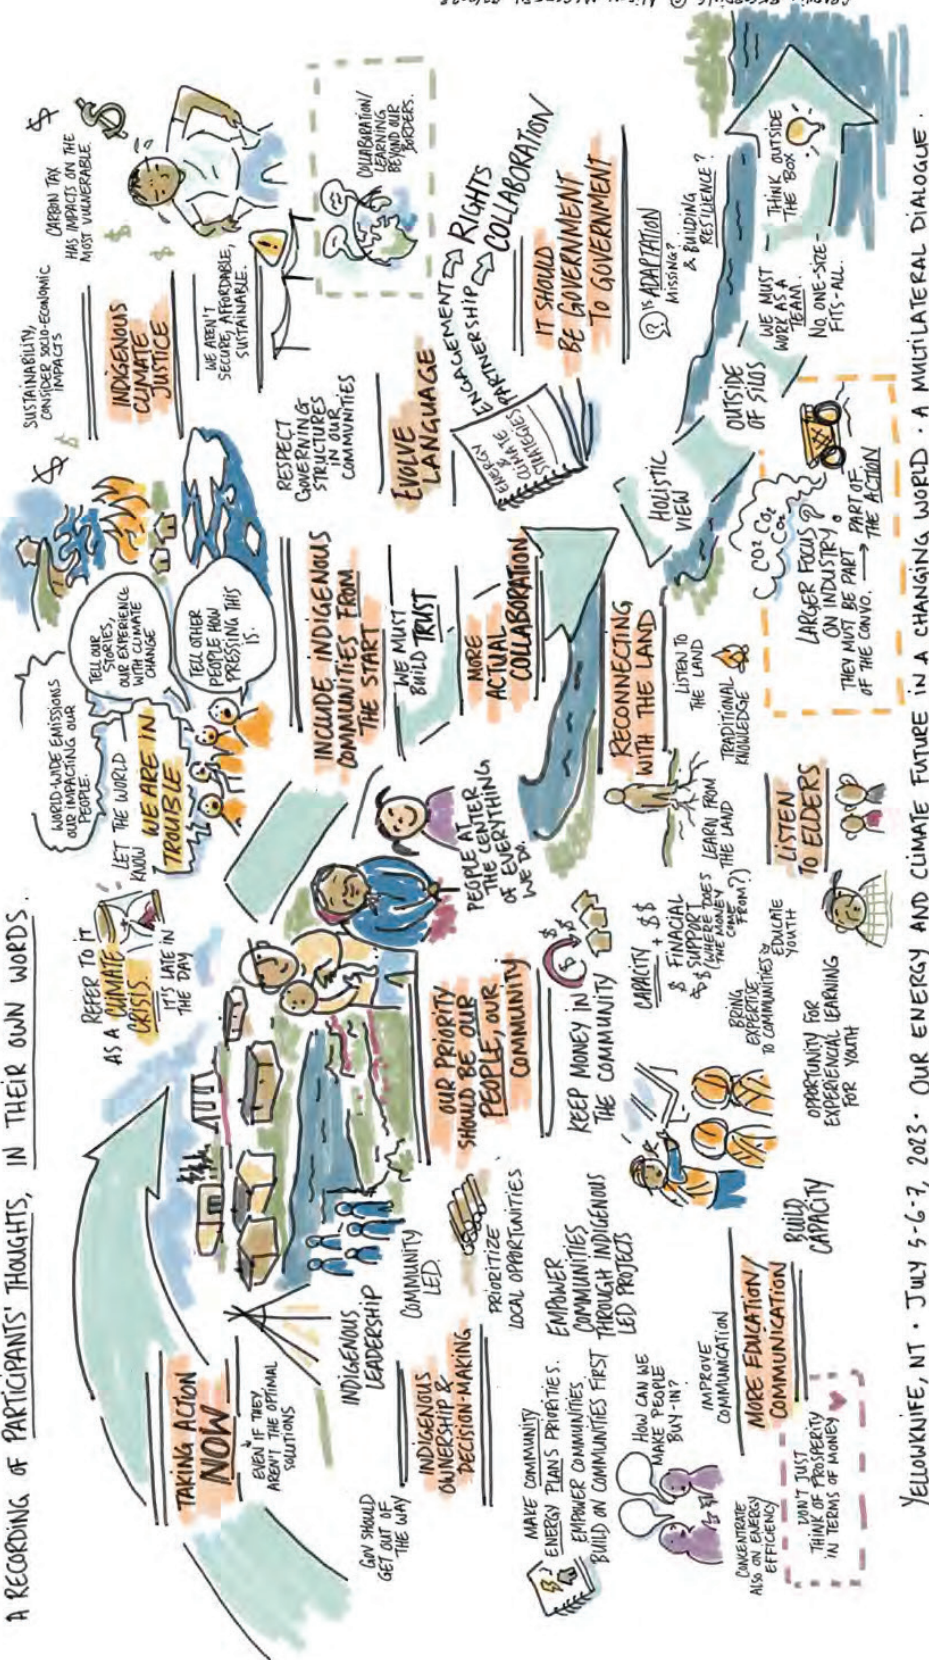 A RECORDING OF PARTICIPANTS' THOUGHTS, IN THEIR OWN WORDS.
TAKING ACTION
NOW
EVEN IF THEY
AREN'T THE OPTIMAL
SOLUTIONS
GOV SHOULD
GET OUT OF
THE WAY
INDIGENOUS
LEADERSHIP
COMMUNITY
LED.
INDIGENOUS
OWNERSHIP &
DECISION-MAKING
PRIORITIZE
LOCAL OPPORTUNITIES
MAKE COMMUNITY
ENERGY PLANS PRIORITIES.
EMPOWER COMMUNITIES
BUILD ON COMMUNITIES FIRST
EMPOWER
COMMUNITIES
THROUGH INDIGENOUS
LED PROJECTS
HOW CAN WE
MAKE PEOPLE
BUY-IN?
IMPROVE
COMMUNICATION
CONCENTRATE
ALSO ON ENERGY
EFFICIENCY
MORE EDUCATION/
COMMUNICATION
BUILD
CAPACITY
DON'T JUST
THINK OF PROSPERITY
IN TERMS OF MONEY
REFER TO IT
AS A CLIMATE
CRISIS.
IT'S LATE IN
THE DAY
OUR PRIORITY
SHOULD BE OUR
PEOPLE, OUR
COMMUNITY
PEOPLE AT
THE CENTER
OF EVERYTHING
WE DO.
KEEP MONEY IN
THE COMMUNITY
$
$
CAPACITY + $$
$ FINACIAL
$$ SUPPORT
(WHERE DOES
THE MONEY
COME
FROM?)
BRING
EXPERTISE
TO COMMUNITIES &
EDUCATE
YOUTH
OPPORTUNITY FOR
EXPERIENCIAL LEARNING
FOR YOUTH
WORLD-WIDE EMISSIONS
OUR IMPACTING OUR
PEOPLE.
LET THE WORLD
KNOW
WE ARE IN
TROUBLE
TELL OUR
STORIES,
OUR EXPERIENCE
WITH CLIMATE
CHANGE
TELL OTHER
PEOPLE HOW
PRESSING THIS
IS.
INCLUDE INDIGENOUS
COMMUNITIES FROM
THE START
WE MUST
BUILD TRUST
MORE
ACTUAL
COLLABORATION
RECONNECTING
WITH THE LAND
LISTEN TO
THE LAND
LEARN FROM
THE LAND
TRADITIONAL
KNOWLEDGE
LISTEN
TO ELDERS
SUSTAINABILITY,
CONSIDER SOCIO-ECONOMIC
IMPACTS
$
$
CARBON TAX
HAS IMPACTS ON THE
MOST VULNERABLE.
$
$
INDIGENOUS
CLIMATE
JUSTICE
WE AREN'T
SECURE, AFFORDABLE,
SUSTAINABLE.
!
COLLABORATION/
LEARNING
BEYOND OUR
BORDERS.
RESPECT
GOVERNING
STRUCTURES
IN OUR
COMMUNITIES
EVOLVE
LANGUAGE
ENGAGEMENT → RIGHTS
PARTNERSHIP → COLLABORATION
ENERGY
&
CLIMATE
STRATEGIES
IT SHOULD
BE GOVERNMENT
TO GOVERNMENT
? IS ADAPTATION
MISSING?
& BUILDING
RESILIENCE?
HOLISTIC
VIEW
OUTSIDE
OF SILOS
WE MUST
WORK AS A
TEAM.
NO ONE-SIZE-
FITS-ALL.
THINK OUTSIDE
THE BOX
CO2 CO2
CO2
LARGER FOCUS
ON INDUSTRY
THEY MUST BE PART
OF THE CONVO. → PART OF
THE ACTION
YELLOWKNIFE, NT · JULY 5-6-7, 2023 · OUR ENERGY AND CLIMATE FUTURE IN A CHANGING WORLD · A MULTILATERAL DIALOGUE.